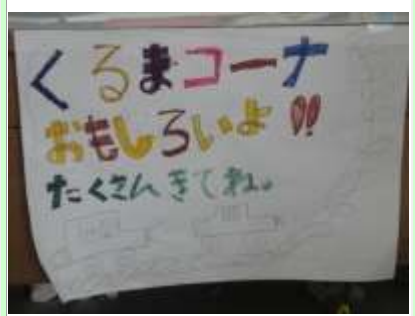 くるまコーナ
おもしろいよ!!
たくさんきてね。